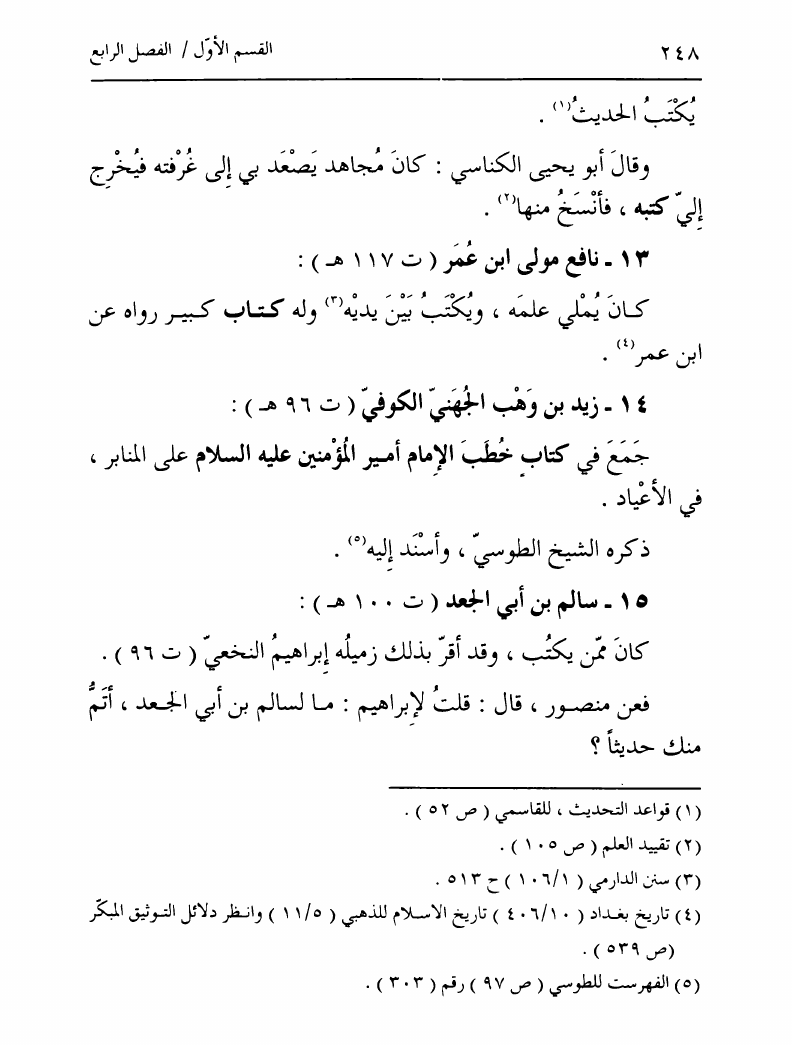 ٢٤٨ القسم الأوّل / الفصل الرابع
يُكْتَبُ الحديثُ(١) .
وقالَ أبو يحيى الكناسي : كانَ مُجاهد يَصْعَد بي إلى غُرْفته فيُخْرِج
إليّ كتبه ، فأنْسَخُ منها(٢) .
١٣ - نافع مولى ابن عُمَر ( ت ١١٧ هـ ) :
كانَ يُمْلي علمَه ، ويُكْتَبُ بَيْنَ يديْه(٣) وله كتاب كبير رواه عن
ابن عمر(٤) .
١٤ - زيد بن وَهْب الجُهَنيّ الكوفيّ ( ت ٩٦ هـ ) :
جَمَعَ في كتابٍ خُطَبَ الإمام أمير المُؤْمنين عليه السلام على المنابر ،
في الأعْياد .
ذكره الشيخ الطوسيّ ، وأسْنَد إليه(٥) .
١٥ - سالم بن أبي الجعد ( ت ١٠٠ هـ ) :
كانَ ممّن يكتُب ، وقد أقرّ بذلك زميلُه إبراهيمُ النخعيّ ( ت ٩٦ ) .
فعن منصور ، قال : قلتُ لإبراهيم : ما لسالم بن أبي الجعد ، أتَمُّ
منك حديثاً ؟
(١) قواعد التحديث ، للقاسمي ( ص ٥٢ ) .
(٢) تقييد العلم ( ص ١٠٥ ) .
(٣) سنن الدارمي ( ١/١٠٦ ) ح ٥١٣ .
(٤) تاريخ بغداد ( ١٠/٤٠٦ ) تاريخ الاسلام للذهبي ( ٥/١١ ) وانظر دلائل التوثيق المبكّر
(ص ٥٣٩ ) .
(٥) الفهرست للطوسي ( ص ٩٧ ) رقم ( ٣٠٣ ) .